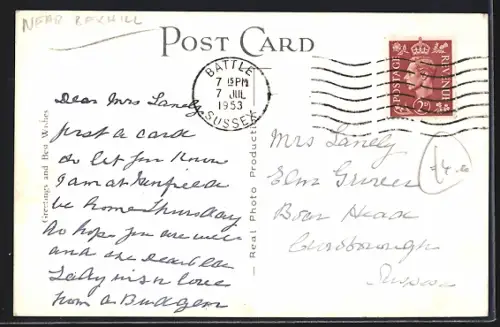 NEAR BEXHILL
POST CARD
BATTLE
7 15PM
7 JUL
1953
SUSSEX
POSTAGE
REVENUE
2D
Greetings and Best Wishes
— Real Photo Production
Dear Mrs Lanely
Just a card
to let you know
I am at
be home Thursday
So hope you are well
and the dear
Lady
from a Budgen
Mrs Lanely
Elm
Boar Head
Crowborough
Sussex